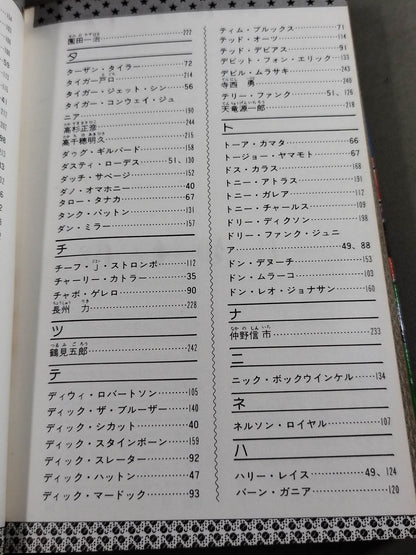 園田一治………222
タ
ターザン・タイラー………72
タイガー戸口………214
タイガー・ジェット・シン……56
タイガー・コンウェイ・ジュ
ニア………190
高杉正彦………244
高千穂明久………215
ダッグ・ギルバード………158
ダスティ・ローデス……51、130
ダッチ・サベージ………151
ダノ・オマホニー………40
タロー・タナカ………67
タンク・パットン………131
ダン・ミラー………157
チ
チーフ・J・ストロンボ………112
チャーリー・カトラー………35
チャボ・ゲレロ………90
長州 力………228
ツ
鶴見五郎………242
テ
ディウィ・ロバートソン………105
ディック・ザ・ブルーザー………140
ディック・シカット………40
ディック・スタインボーン……159
ディック・スレーター………92
ディック・ハットン………47
ディック・マードック………93
ティム・ブルックス………71
テッド・オーツ………114
テッド・デビアス………91
デビット・フォン・エリック……133
デビル・ムラサキ………243
寺西 勇………241
テリー・ファンク………51、126
天竜源一郎………218
ト
トーア・カマタ………66
トージョー・ヤマモト………67
ドス・カラス………188
トニー・アトラス………191
トニー・ガレア………112
トニー・チャールス………109
ドリー・ディクソン………198
ドリー・ファンク・ジュニ
ア………49、88
ドン・デヌーチ………153
ドン・ムラーコ………103
ドン・レオ・ジョナサン………160
ナ
仲野信市………233
ニ
ニック・ボックウインケル……134
ネ
ネルソン・ロイヤル………107
ハ
ハリー・レイス………49、124
バーン・ガニア………120